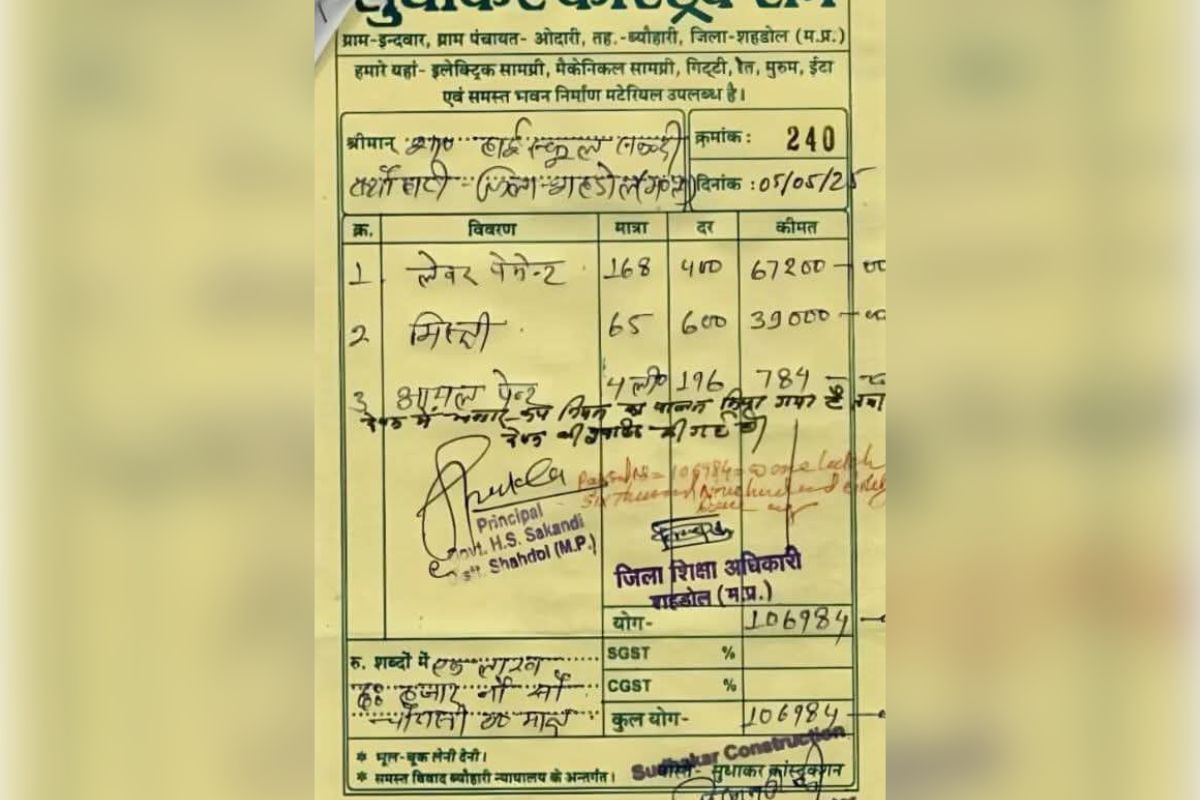 सुधाकर कंस्ट्रक्शन
ग्राम-इन्दवार, ग्राम पंचायत- ओदारी, तह.-ब्यौहारी, जिला-शहडोल (म.प्र.)
हमारे यहां- इलेक्ट्रिक सामग्री, मैकेनिकल सामग्री, गिट्टी, रेत, मुरुम, ईंटा
एवं समस्त भवन निर्माण मटेरियल उपलब्ध है।
श्रीमान् शा० हाई स्कूल सकन्दी
क्रमांक: 240
जिला-शहडोल म०प्र०
दिनांक :05/05/25
क्र. विवरण मात्रा दर कीमत
1 लेबर पेमेन्ट 168 400 67200 - 00
2 मिस्त्री 65 600 39000 - 00
3 आयल पेन्ट 4 ली० 196 784
का पालन किया गया है तथा
की गई है
Shukla
Passed Rs = 106984 = 00 one lakh
Six thousand Nine hundred eighty
Principal
Govt. H.S. Sakandi
Distt. Shahdol (M.P.)
जिला शिक्षा अधिकारी
शहडोल (म.प्र.)
योग- 106984
SGST %
CGST %
रु. शब्दों में एक लाख
छः हजार नौ सौ
चौरासी रू मात्र
कुल योग- 106984
* भूल-चूक लेनी देनी।
* समस्त विवाद ब्यौहारी न्यायालय के अन्तर्गत।
Sudhakar Construction
वास्ते- सुधाकर कांस्ट्रक्शन